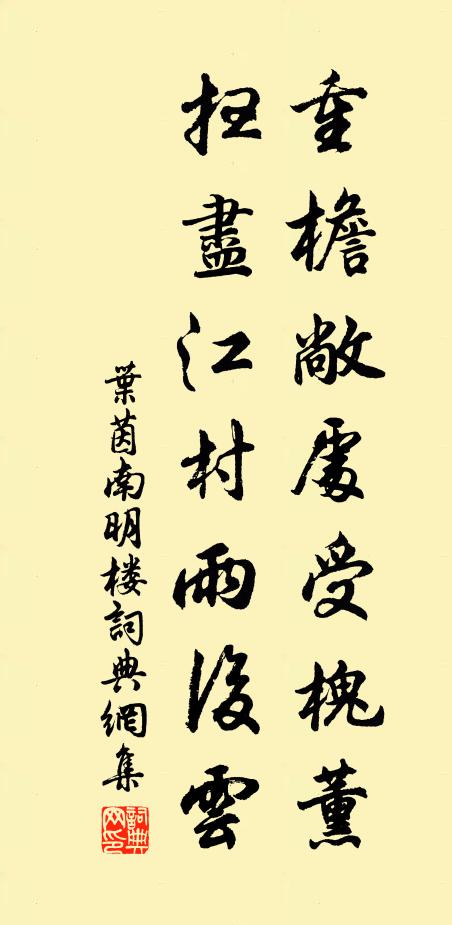 重檐敞處受槐薰
抂盡江村雨後雲
葉茵南明楼詞典網集
詞典网印